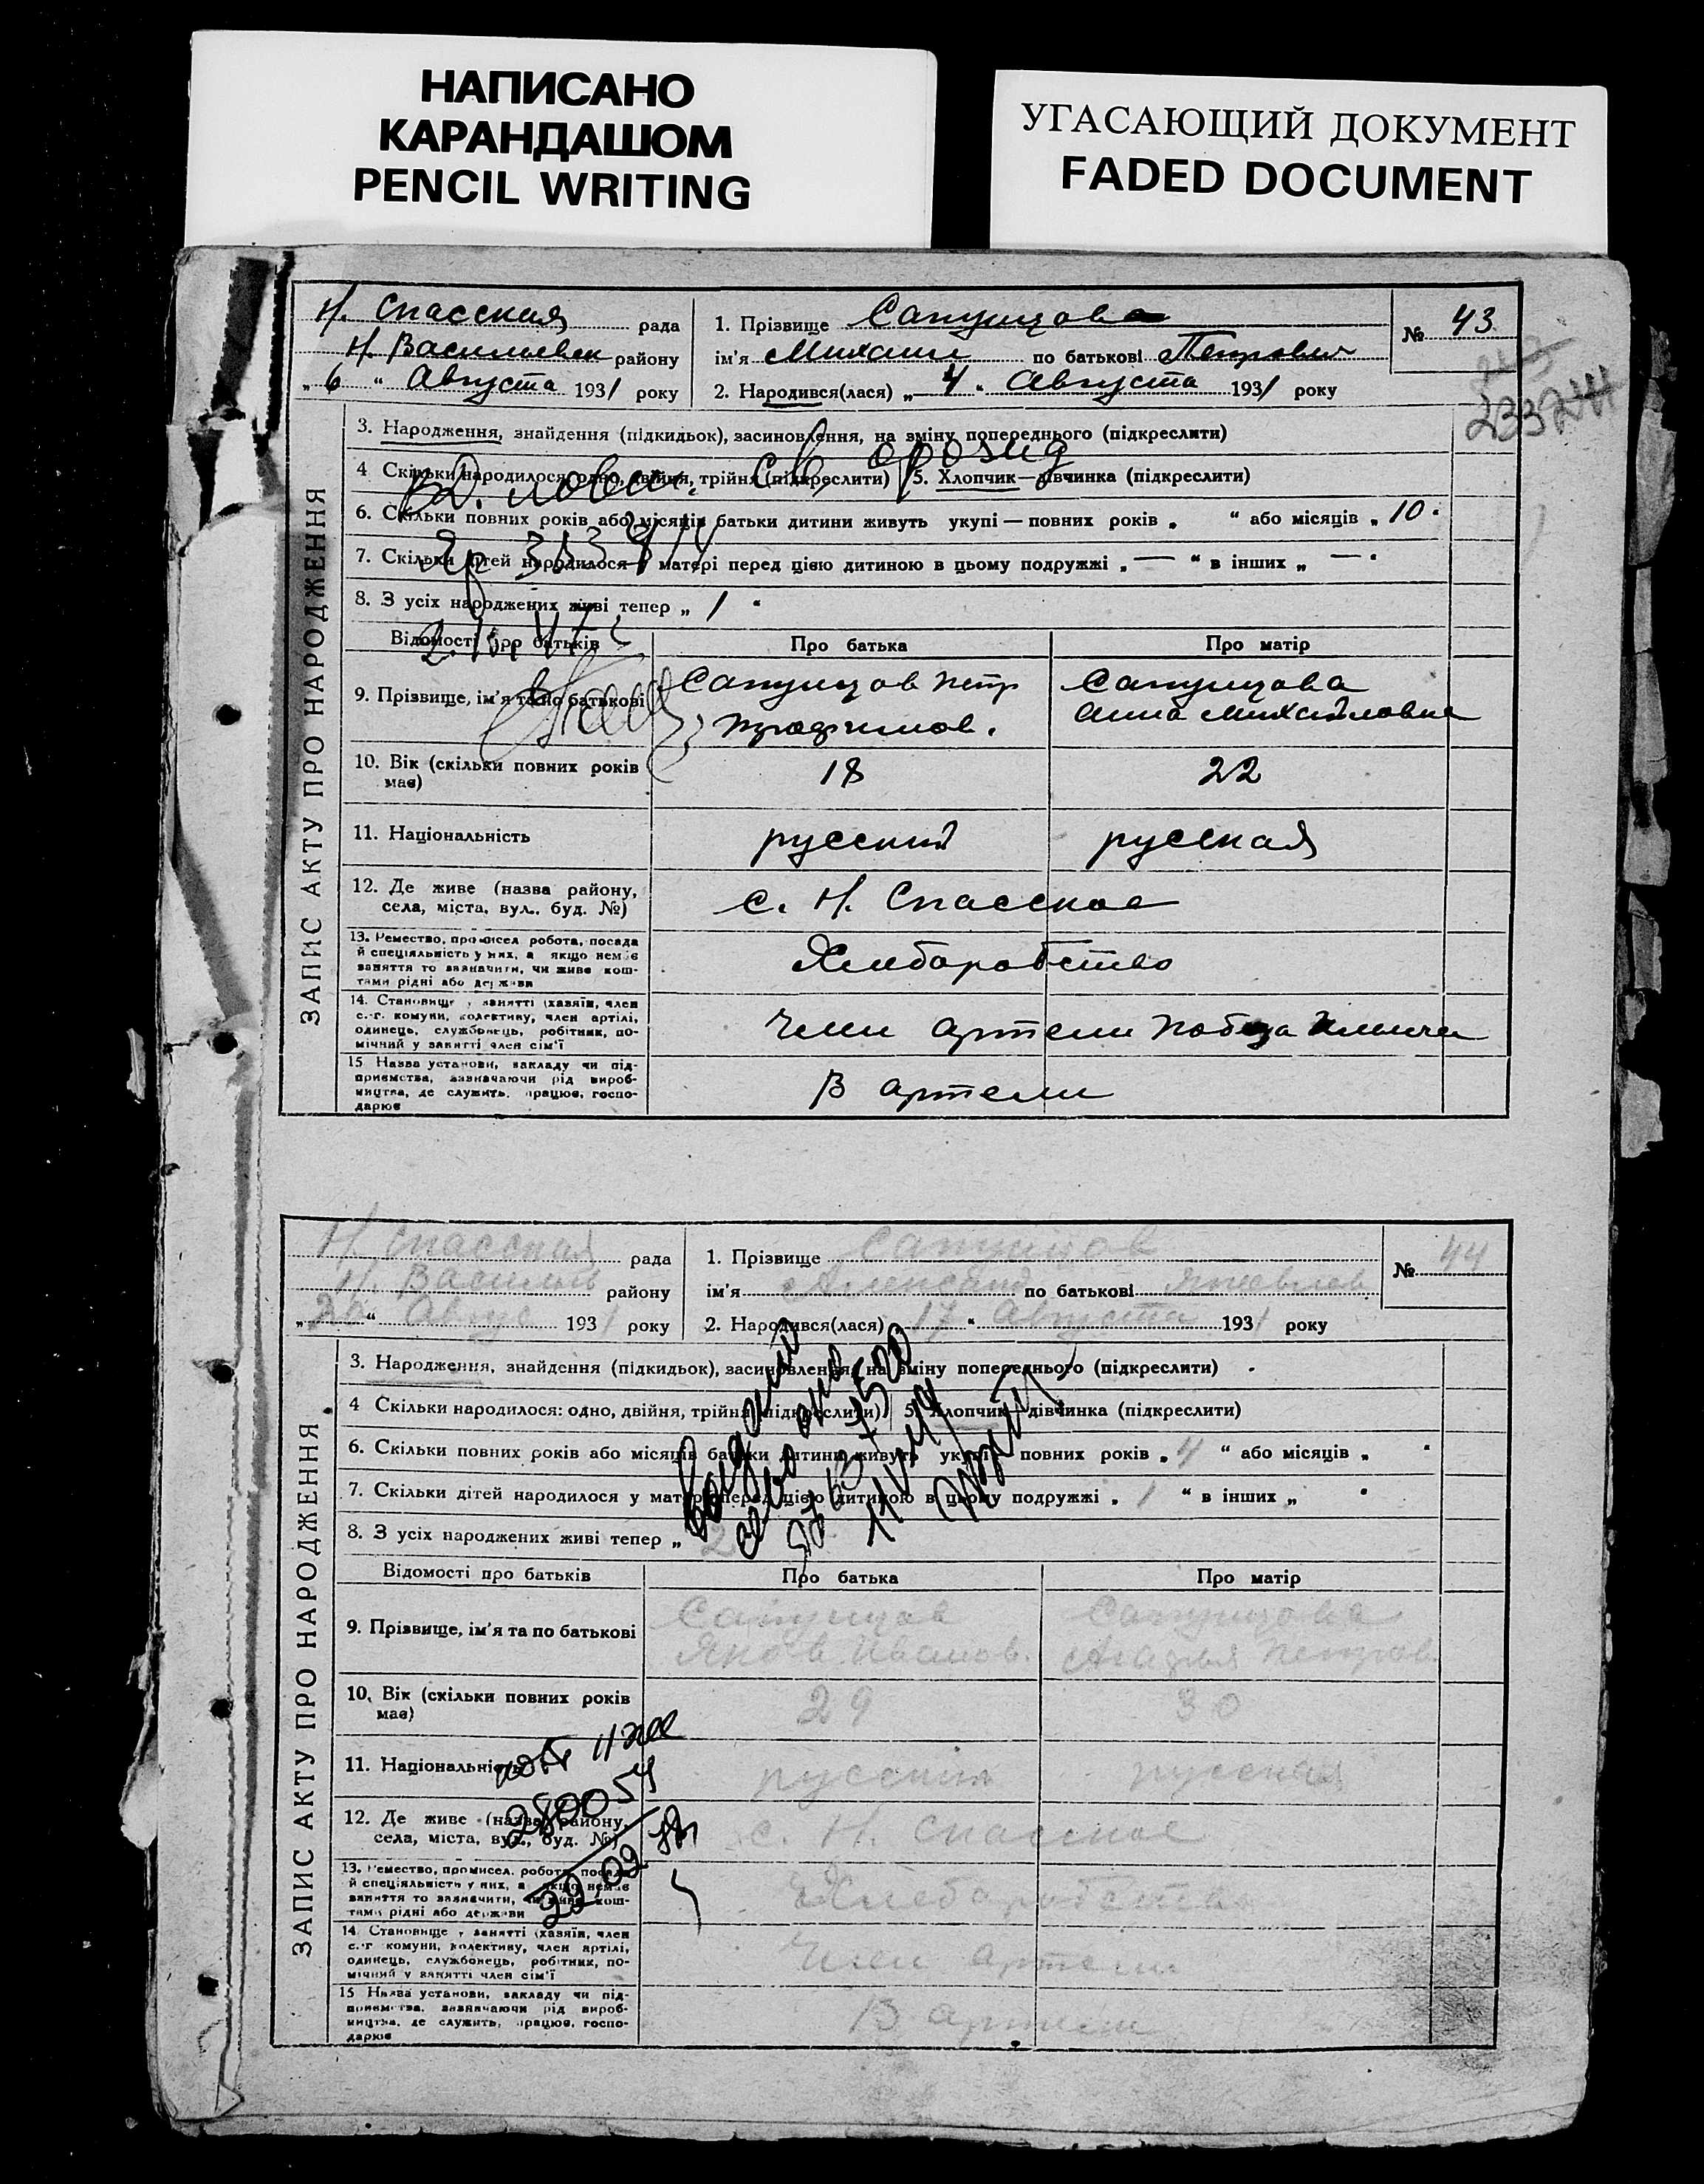 НАПИСАНО
КАРАНДАШОМ
PENCIL WRITING
УГАСАЮЩИЙ ДОКУМЕНТ
FADED DOCUMENT
Н. Спасская рада
Н. Васильевск району
„ 6 “ Августа 1931 року
1. Прізвище Сапунцова
ім'я Михаил по батькові Петрович
2. Народився(лася) „ 4 “ Августа 1931 року
№ 43
ЗАПИС АКТУ ПРО НАРОДЖЕННЯ
3. Народження, знайдення (підкидьок), засиновлення, на зміну попереднього (підкреслити)
4 Скільки народилося: одно, двійня, трійня (підкреслити) 5. Хлопчик—дівчинка (підкреслити)
6. Скільки повних років або місяців батьки дитини живуть укупі — повних років „ “ або місяців „ 10 “
7. Скільки дітей народилося у матері перед цією дитиною в цьому подружжі „ — “ в інших „ — “
8. З усіх народжених живі тепер „ 1 “
Відомості про батьків Про батька Про матір
9. Прізвище, ім'я та по батькові
Сапунцов Петр
Трофимов.
Сапунцова
Анна Михайловна
10. Вік (скільки повних років
має) 18 22
11. Національність русский русская
12. Де живе (назва району,
села, міста, вул., буд. №) с. Н. Спасское
13. Ремество, промисел робота, посада
й спеціяльність у них, а якщо немає
заняття то зазначити, чи живе кош-
тами рідні або держави
Хлеборобство
14. Становище у занятті (хазяїн, член
с.-г. комуни, колективу, член артілі,
одинець, службовець, робітник, по-
мічний у занятті член сім'ї
Член артели Победа Ильича
15 Назва установи, закладу чи під-
приємства, зазначаючи рід вироб-
ництва, де служить, працює, госпо-
дарює
В артели
Н. Спасская рада
Н. Васильев району
“ Авгус 1931 року
1. Прізвище Сапунцов
ім'я Александ по батькові Яковлев
2. Народився(лася) „ 17 “ Августа 1931 року
№ 44
ЗАПИС АКТУ ПРО НАРОДЖЕННЯ
3. Народження, знайдення (підкидьок), засиновлення, на зміну попереднього (підкреслити)
4 Скільки народилося: одно, двійня, трійня (підкреслити) 5. Хлопчик—дівчинка (підкреслити)
6. Скільки повних років або місяців батьки дитини живуть укупі — повних років „ 4 “ або місяців „ “
7. Скільки дітей народилося у матері перед цією дитиною в цьому подружжі „ 1 “ в інших „ “
8. З усіх народжених живі тепер „ 2
Відомості про батьків Про батька Про матір
9. Прізвище, ім'я та по батькові
Сапунцов
Яков Иванов.
Сапунцова
Агафья Петров
10. Вік (скільки повних років
має) 29 30
11. Національність русский русская
12. Де живе (назва району,
села, міста, вул., буд. №) с. Н. Спасское
280054
13. Ремество, промисел. робота, посада
й спеціяльність у них, а якщо немає
заняття то зазначити, чи живе кош-
тами рідні або держави
Хлеборобство
14. Становище у занятті (хазяїн, член
с.-г комуни, колективу, член артілі,
одинець, службовець, робітник, по-
мічний у занятті член сім'ї
Член артели
15 Назва установи, закладу чи під-
приємства, зазначаючи рід вироб-
ництва, де служить, працює, госпо-
дарює
В артели